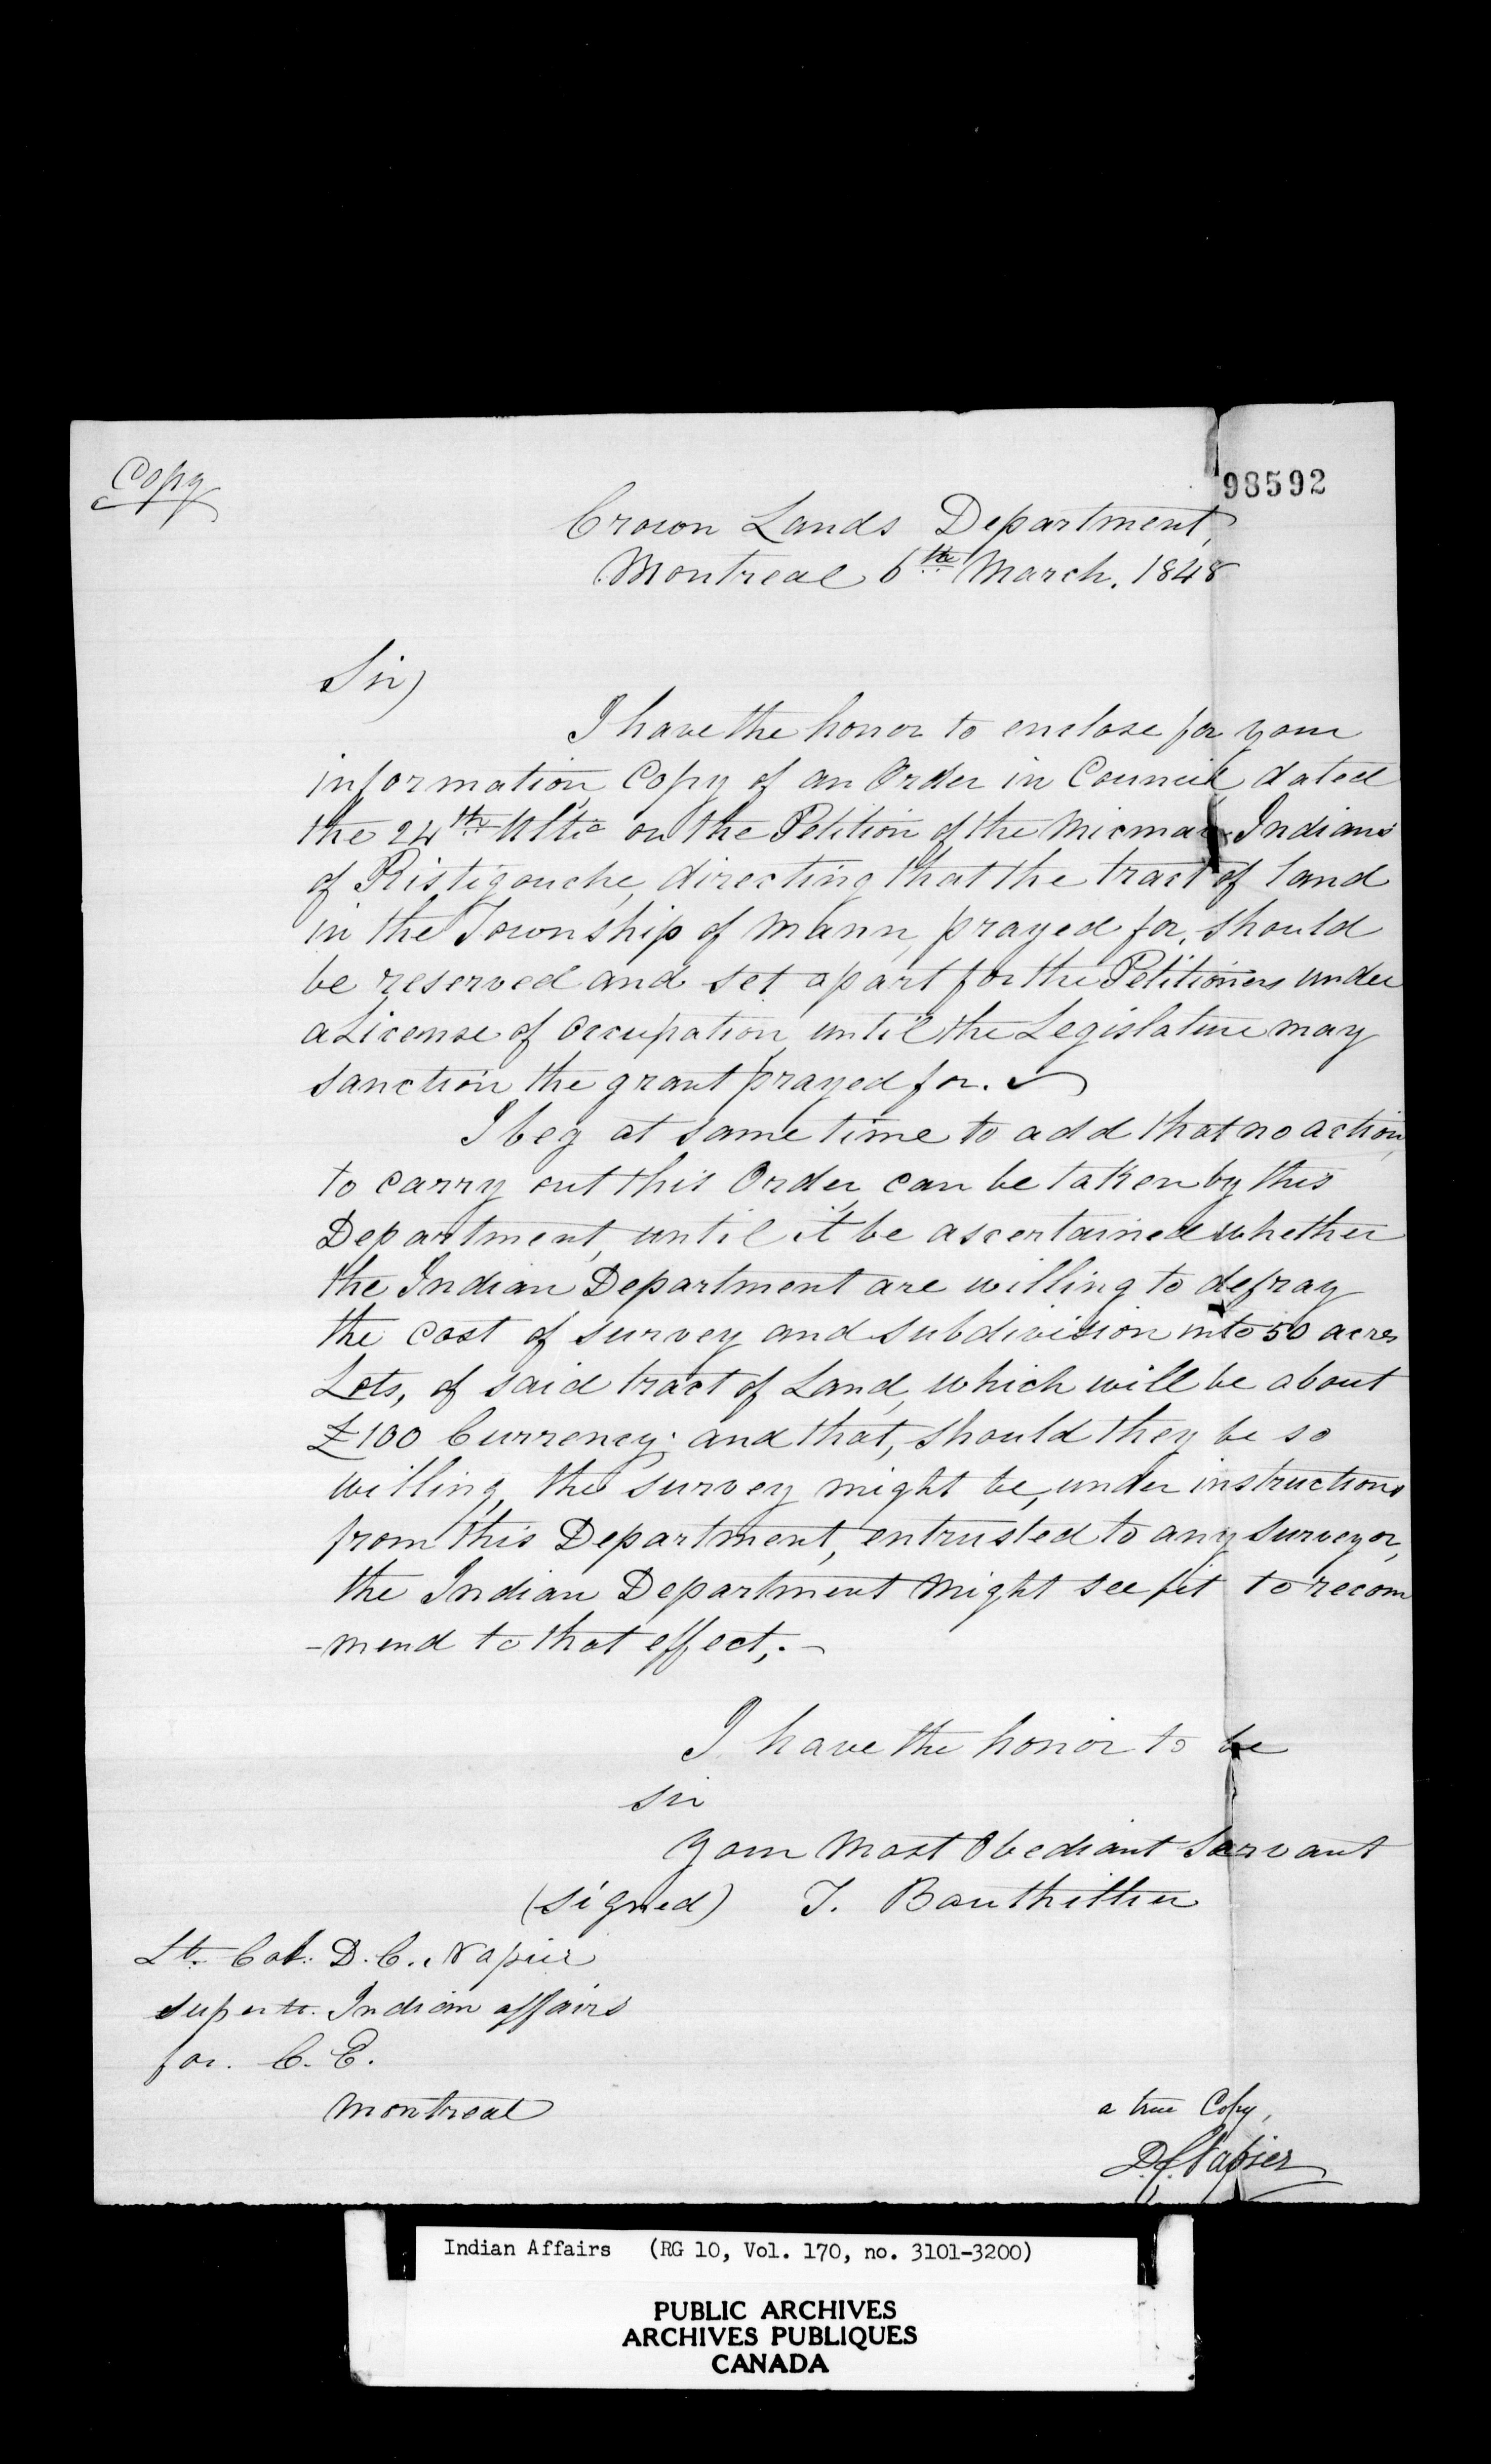 Copy
98592
Crown Lands Department,
Montreal 6th March. 1848
Sir)
I have the honor to enclose for your
information, Copy of an Order in Council dated
the 24th Ulto on the Petition of the Micmac Indians
of Ristigouche, directing that the tract of land
in the Township of Mann, prayed for, should
be reserved and set apart for the Petitioners under
a License of Occupation, until the Legislature may
sanction the grant prayed for.
I beg at same time to add that no action,
to carry out this Order, can be taken by this
Department, until it be ascertained whether
the Indian Department are willing to defray
the cost of survey and subdivision into 50 acres
Lots, of said tract of Land, which will be about
£100 Currency; and that, should they be so
willing, the survey might be, under instructions
from this Department, entrusted to any surveyor,
the Indian Department might see fit to recom
-mend to that effect,.-
I have the honor to be
Sir
Your Most Obediant Servant
(signed) T. Bouthillier
Lt. Col. D. C. Napier
Supertt. Indian affairs
for. C. E.
Montreal
a true Copy,
D.C. Napier
Indian Affairs (RG 10, Vol. 170, no. 3101-3200)
PUBLIC ARCHIVES
ARCHIVES PUBLIQUES
CANADA